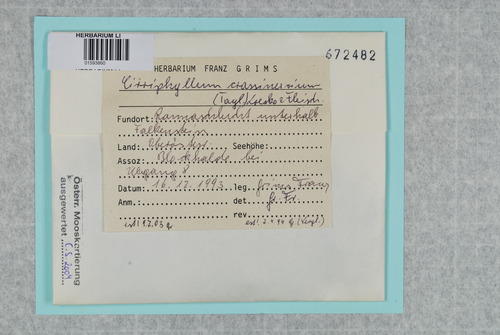 HERBARIUM LI
672482
HERBARIUM FRANZ GRIMS
Cirriphyllum crassinervium
(Tayl.) Loeske & Fleisch.
Fundort: Rannaschlucht unterhalb
Falkenstein
Land: Oberösterr. Seehöhe:
Assoz: Blockhalde bei
Datum: 16.12.1993 leg. Grims Franz
Anm.: det. Gr. Fr.
rev.
Österr. Mooskartierung
ausgewertet